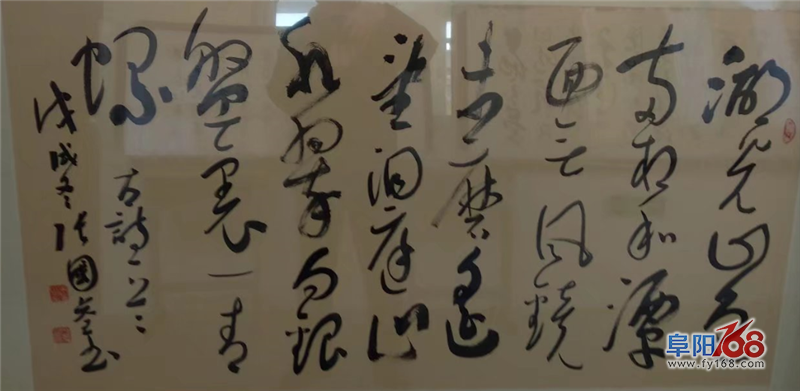 湖光山色
两相和潭
面无风镜
未磨遥
望洞庭山
水翠白银
盘里一青
螺
古诗一首
戊戌冬 张国书
阜阳168
www.fy168.com